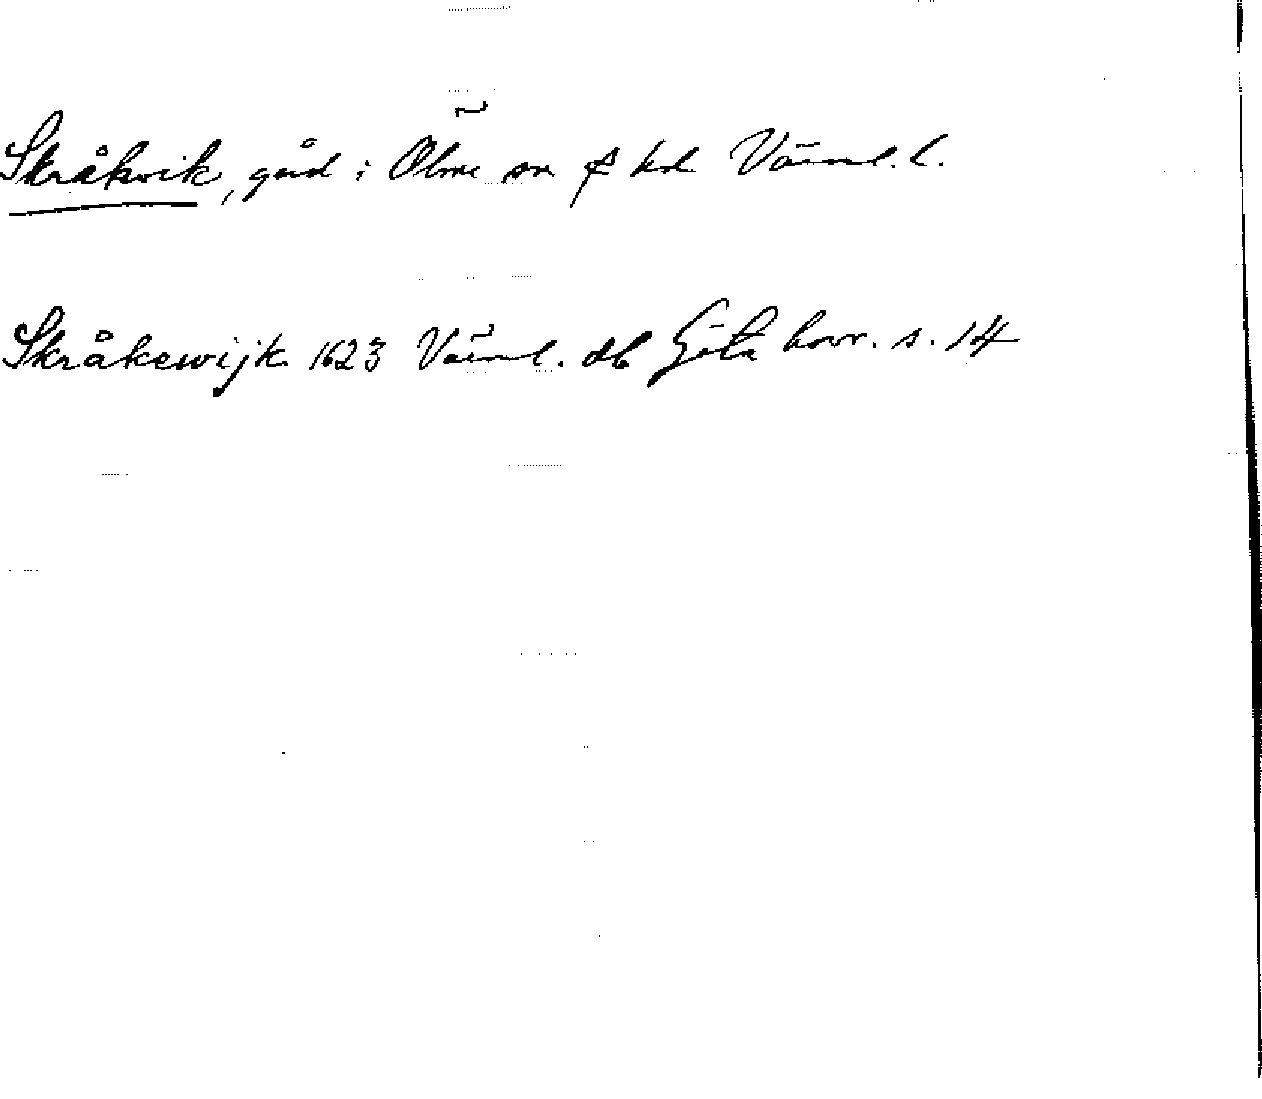 Skråkvik, gård i Ölme sn & hd Värml. l.
Skråkewijk 1623 Värml. db Göta hovr. s. 14